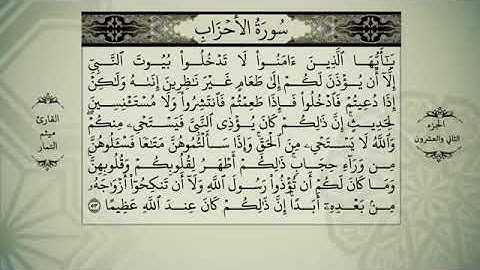 سُورَةُ الأَحْزَابِ
يَٰٓأَيُّهَا ٱلَّذِينَ ءَامَنُوا۟ لَا تَدْخُلُوا۟ بُيُوتَ ٱلنَّبِىِّ
إِلَّآ أَن يُؤْذَنَ لَكُمْ إِلَىٰ طَعَامٍ غَيْرَ نَٰظِرِينَ إِنَىٰهُ وَلَٰكِنْ
إِذَا دُعِيتُمْ فَٱدْخُلُوا۟ فَإِذَا طَعِمْتُمْ فَٱنتَشِرُوا۟ وَلَا مُسْتَـْٔنِسِينَ
لِحَدِيثٍ ۚ إِنَّ ذَٰلِكُمْ كَانَ يُؤْذِى ٱلنَّبِىَّ فَيَسْتَحْىِۦ مِنكُمْ ۖ
وَٱللَّهُ لَا يَسْتَحْىِۦ مِنَ ٱلْحَقِّ ۚ وَإِذَا سَأَلْتُمُوهُنَّ مَتَٰعًا فَسْـَٔلُوهُنَّ
مِن وَرَآءِ حِجَابٍ ۚ ذَٰلِكُمْ أَطْهَرُ لِقُلُوبِكُمْ وَقُلُوبِهِنَّ ۚ
وَمَا كَانَ لَكُمْ أَن تُؤْذُوا۟ رَسُولَ ٱللَّهِ وَلَآ أَن تَنكِحُوٓا۟ أَزْوَٰجَهُۥ
مِنۢ بَعْدِهِۦٓ أَبَدًا ۚ إِنَّ ذَٰلِكُمْ كَانَ عِندَ ٱللَّهِ عَظِيمًا ٥٣
الجزء
الثاني والعشرون
القارئ
ميثم
التمار